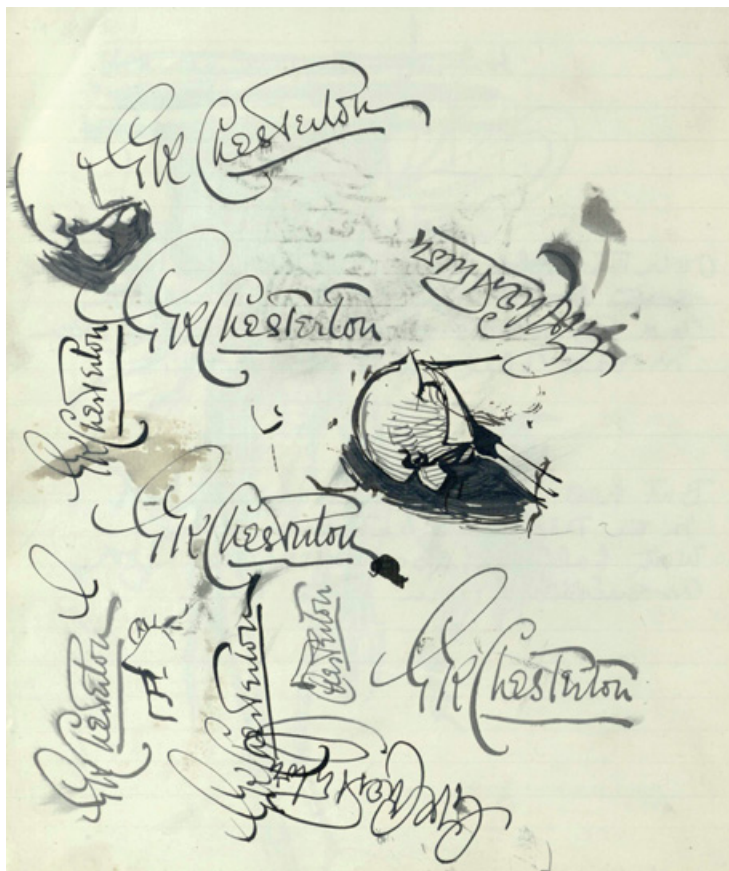 GK Chesterton
GK Chesterton
GK Chesterton
GK Chesterton
GK Chesterton
GK Chesterton
GK Chesterton
Chesterton
GK Chesterton
GK Chesterton